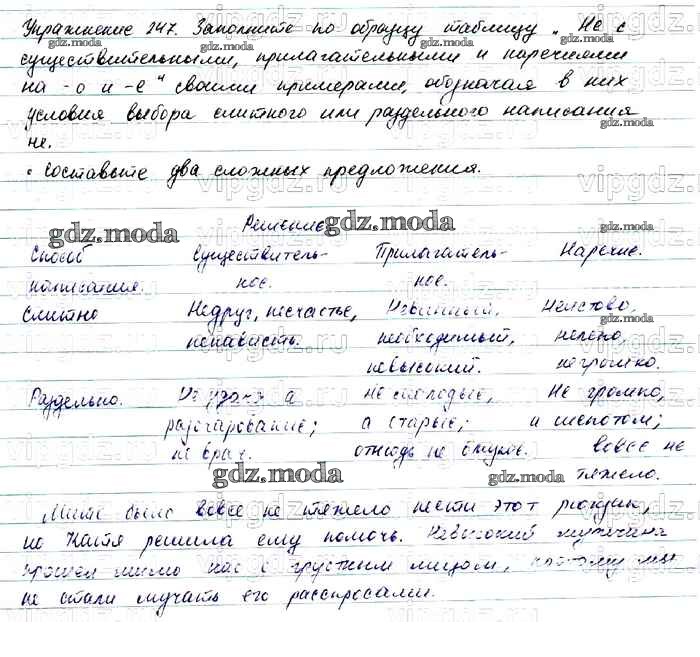 Упражнение 247. Заполните по образцу таблицу „Не с
существительными, прилагательными и наречиями
на -о и -е" своими примерами, обозначая в них
условия выбора слитного или раздельного написания
не.
• Составьте два сложных предложения.
Решение
Способ написания. Существительное. Прилагательное. Наречие.
Слитно Недруг, несчастье, ненависть. необходимый, невысокий. Неистово, нелепо, негромко.
Раздельно. Не удача а разочарование; не враг. не молодые, а старые; отнюдь не Не громко, и шепотом; вовсе не тяжело.
Мите было вовсе не тяжело нести этот рюкзак,
но Настя решила ему помочь. Невысокий мужчина
прошел мимо нас с грустным лицом, поэтому мы
не стали мучать его расспросами.
gdz.moda
vipgdz.ru